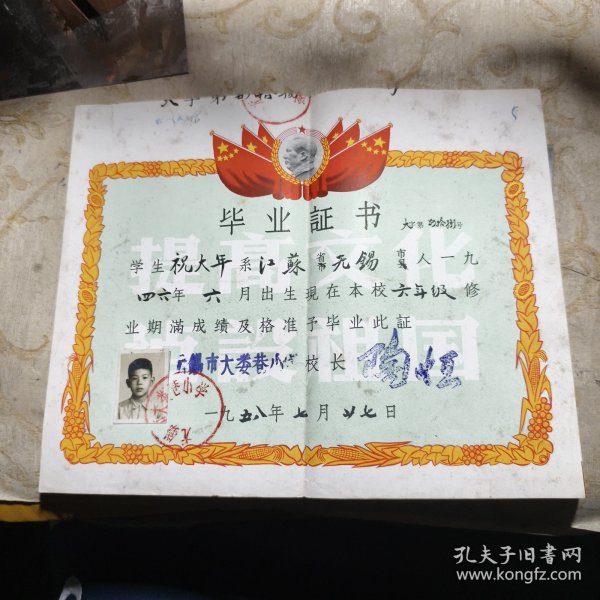 毕业証书
大字第 号
学生祝大年系江蘇省无锡市人一九
四六年六月出生現在本校六年級修
业期滿成績及格准予毕业此証
无錫市大娄巷小学 校长 陶恒
一九五八年七月廿七日
提高文化
建設祖国
孔夫子旧书网
www.kongfz.com